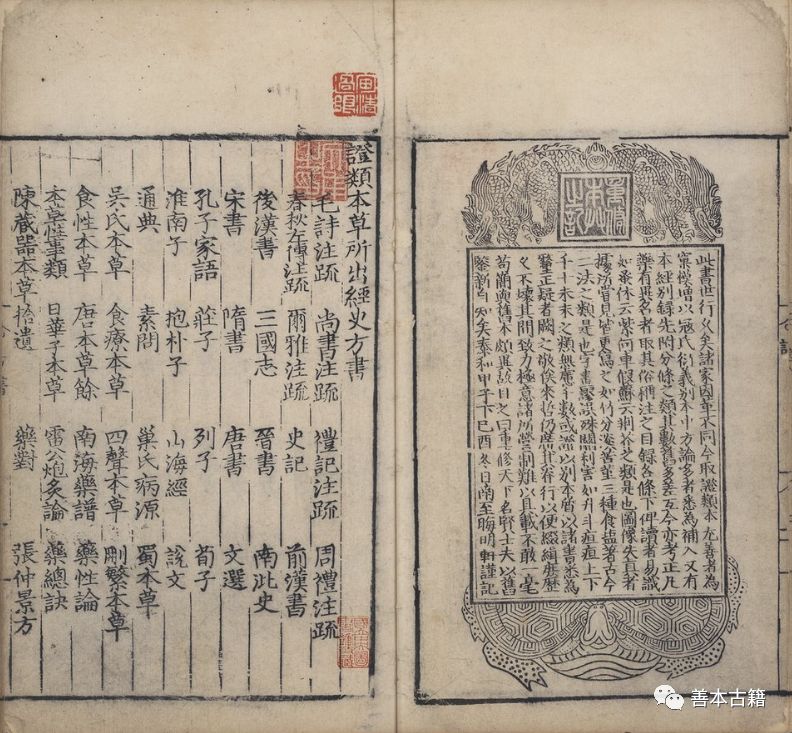 重修
本草
之記
此書世行久矣諸家因革不同今取證類本尤善者為
窠模增以寇氏衍義別本中方論多者悉為補入又有
本經別録先附分條之類其數舊多差互今亦考正凡
藥有異名者取其俗稱注之目録各條下俾讀者易識
如蚤休云紫河車假蘇云荊芥之類是也圖像失真者
據所嘗見皆更寫之如竹分淡苦菫三種食鹽著古今
二法之類是也字書謬誤殊關利害如升斗疽疸上下
千十未末之類無慮千數或證以別本質以諸書悉為
釐正疑者闕之敬俟來哲仍廣其脊行以便綴緝庶歷
久不壞其間致力極意諸所營制難以具載不敢一毫
苟簡與舊本頗異故目之曰重修天下名賢士夫以舊
鑒新自知矣泰和甲子下己酉冬日南至晦明軒謹記
證類本草所出經史方書
毛詩注疏 尚書注疏 禮記注疏 周禮注疏
春秋左傳注疏 爾雅注疏 史記 前漢書
後漢書 三國志 晉書 南北史
宋書 隋書 唐書 文選
孔子家語 莊子 列子 荀子
淮南子 抱朴子 山海經 說文
通典 素問 巢氏病源 蜀本草
吳氏本草 食療本草 四聲本草 刪繁本草
食性本草 唐本草餘 南海藥譜 藥性論
本草性事類 日華子本草 雷公炮炙論 藥總訣
陳藏器本草拾遺 藥對 張仲景方
善本古籍